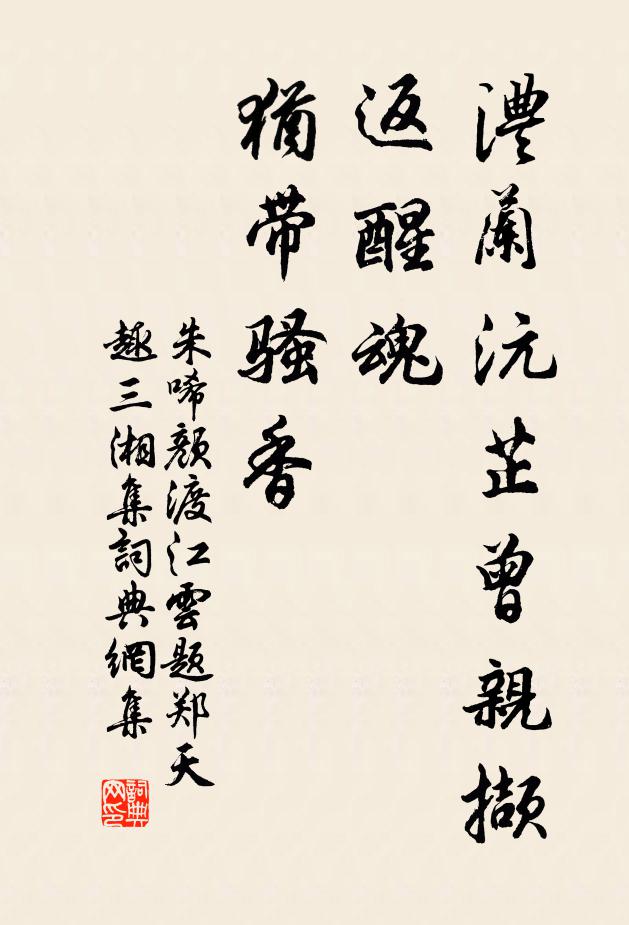 澧蘭沅芷曾親擷
返醒魂
猶帶騷香
朱唏顏渡江雲題郑天
趣三湘集詞典網集
詞典网印